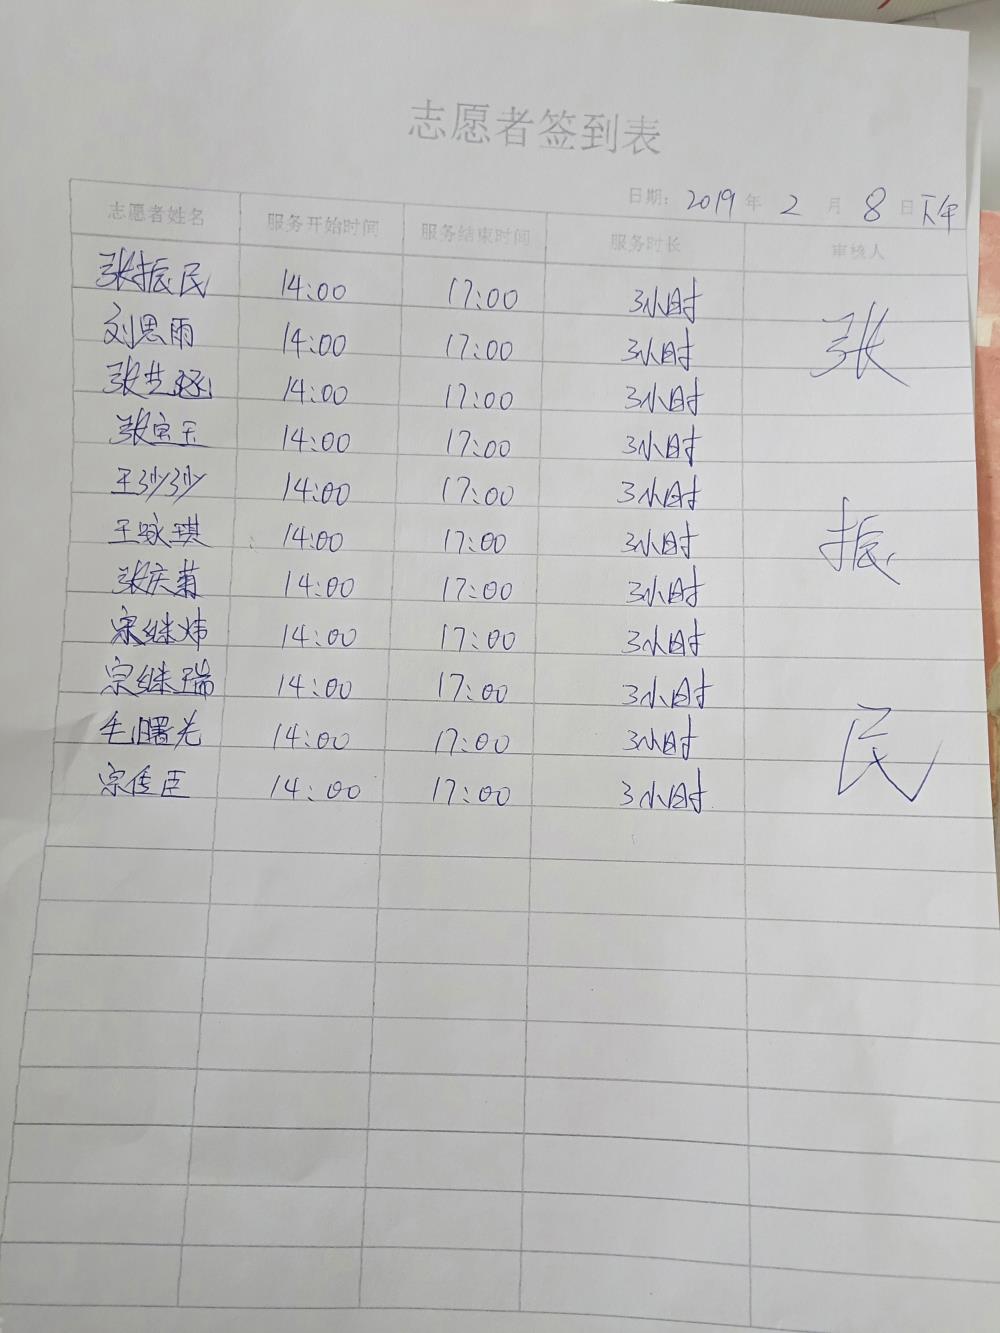 志愿者签到表
日期: 2019 年 2 月 8 日 下午
志愿者姓名 服务开始时间 服务结束时间 服务时长 审核人
张振民 14:00 17:00 3小时
刘思雨 14:00 17:00 3小时
张 14:00 17:00 3小时
张宝玉 14:00 17:00 3小时
王沙沙 14:00 17:00 3小时
王咏琪 14:00 17:00 3小时
张庆菊 14:00 17:00 3小时
宗继炜 14:00 17:00 3小时
宗继瑞 14:00 17:00 3小时
毛曙光 14:00 17:00 3小时
宗传臣 14:00 17:00 3小时
张
振
民